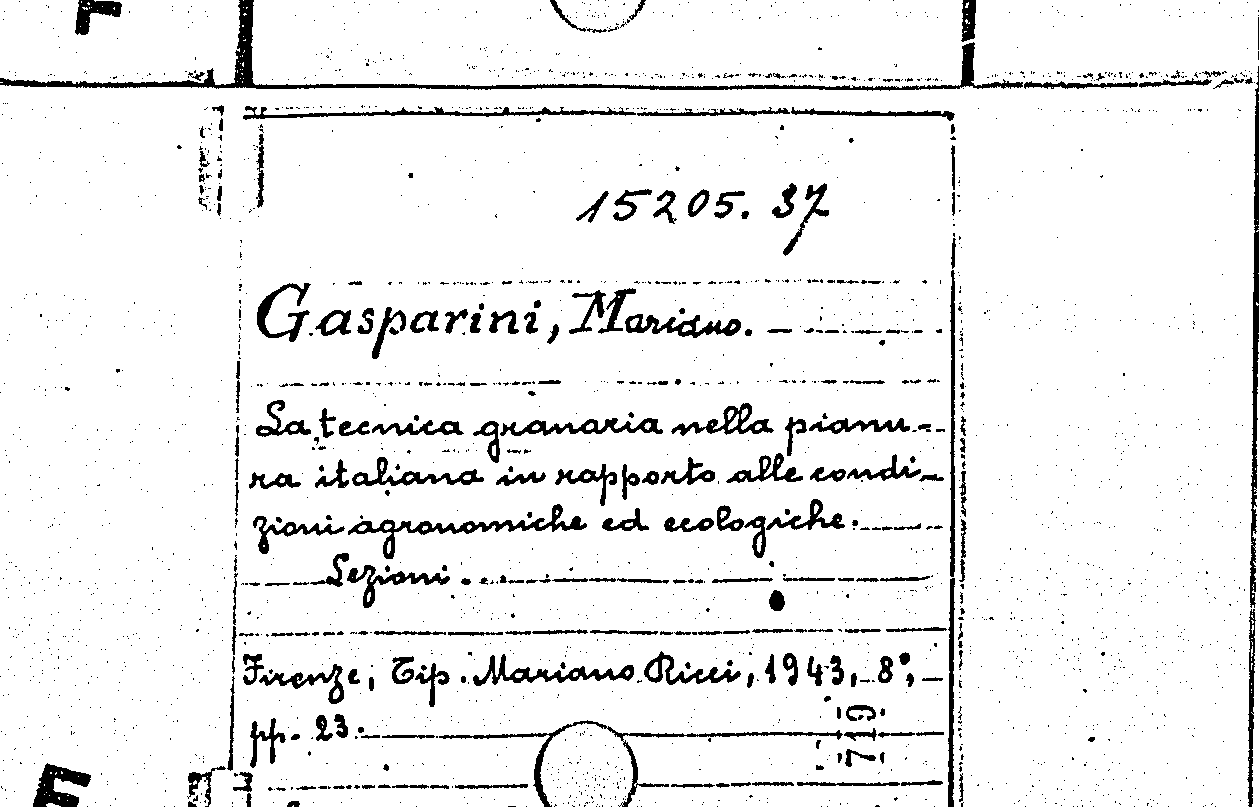 15205. 37
Gasparini, Mariano. -
La tecnica granaria nella pianu-
ra italiana in rapporto alle condi-
zioni agronomiche ed ecologiche.
Lezioni...
Firenze, Tip. Mariano Ricci, 1943, 8°,
pp. 23.
719